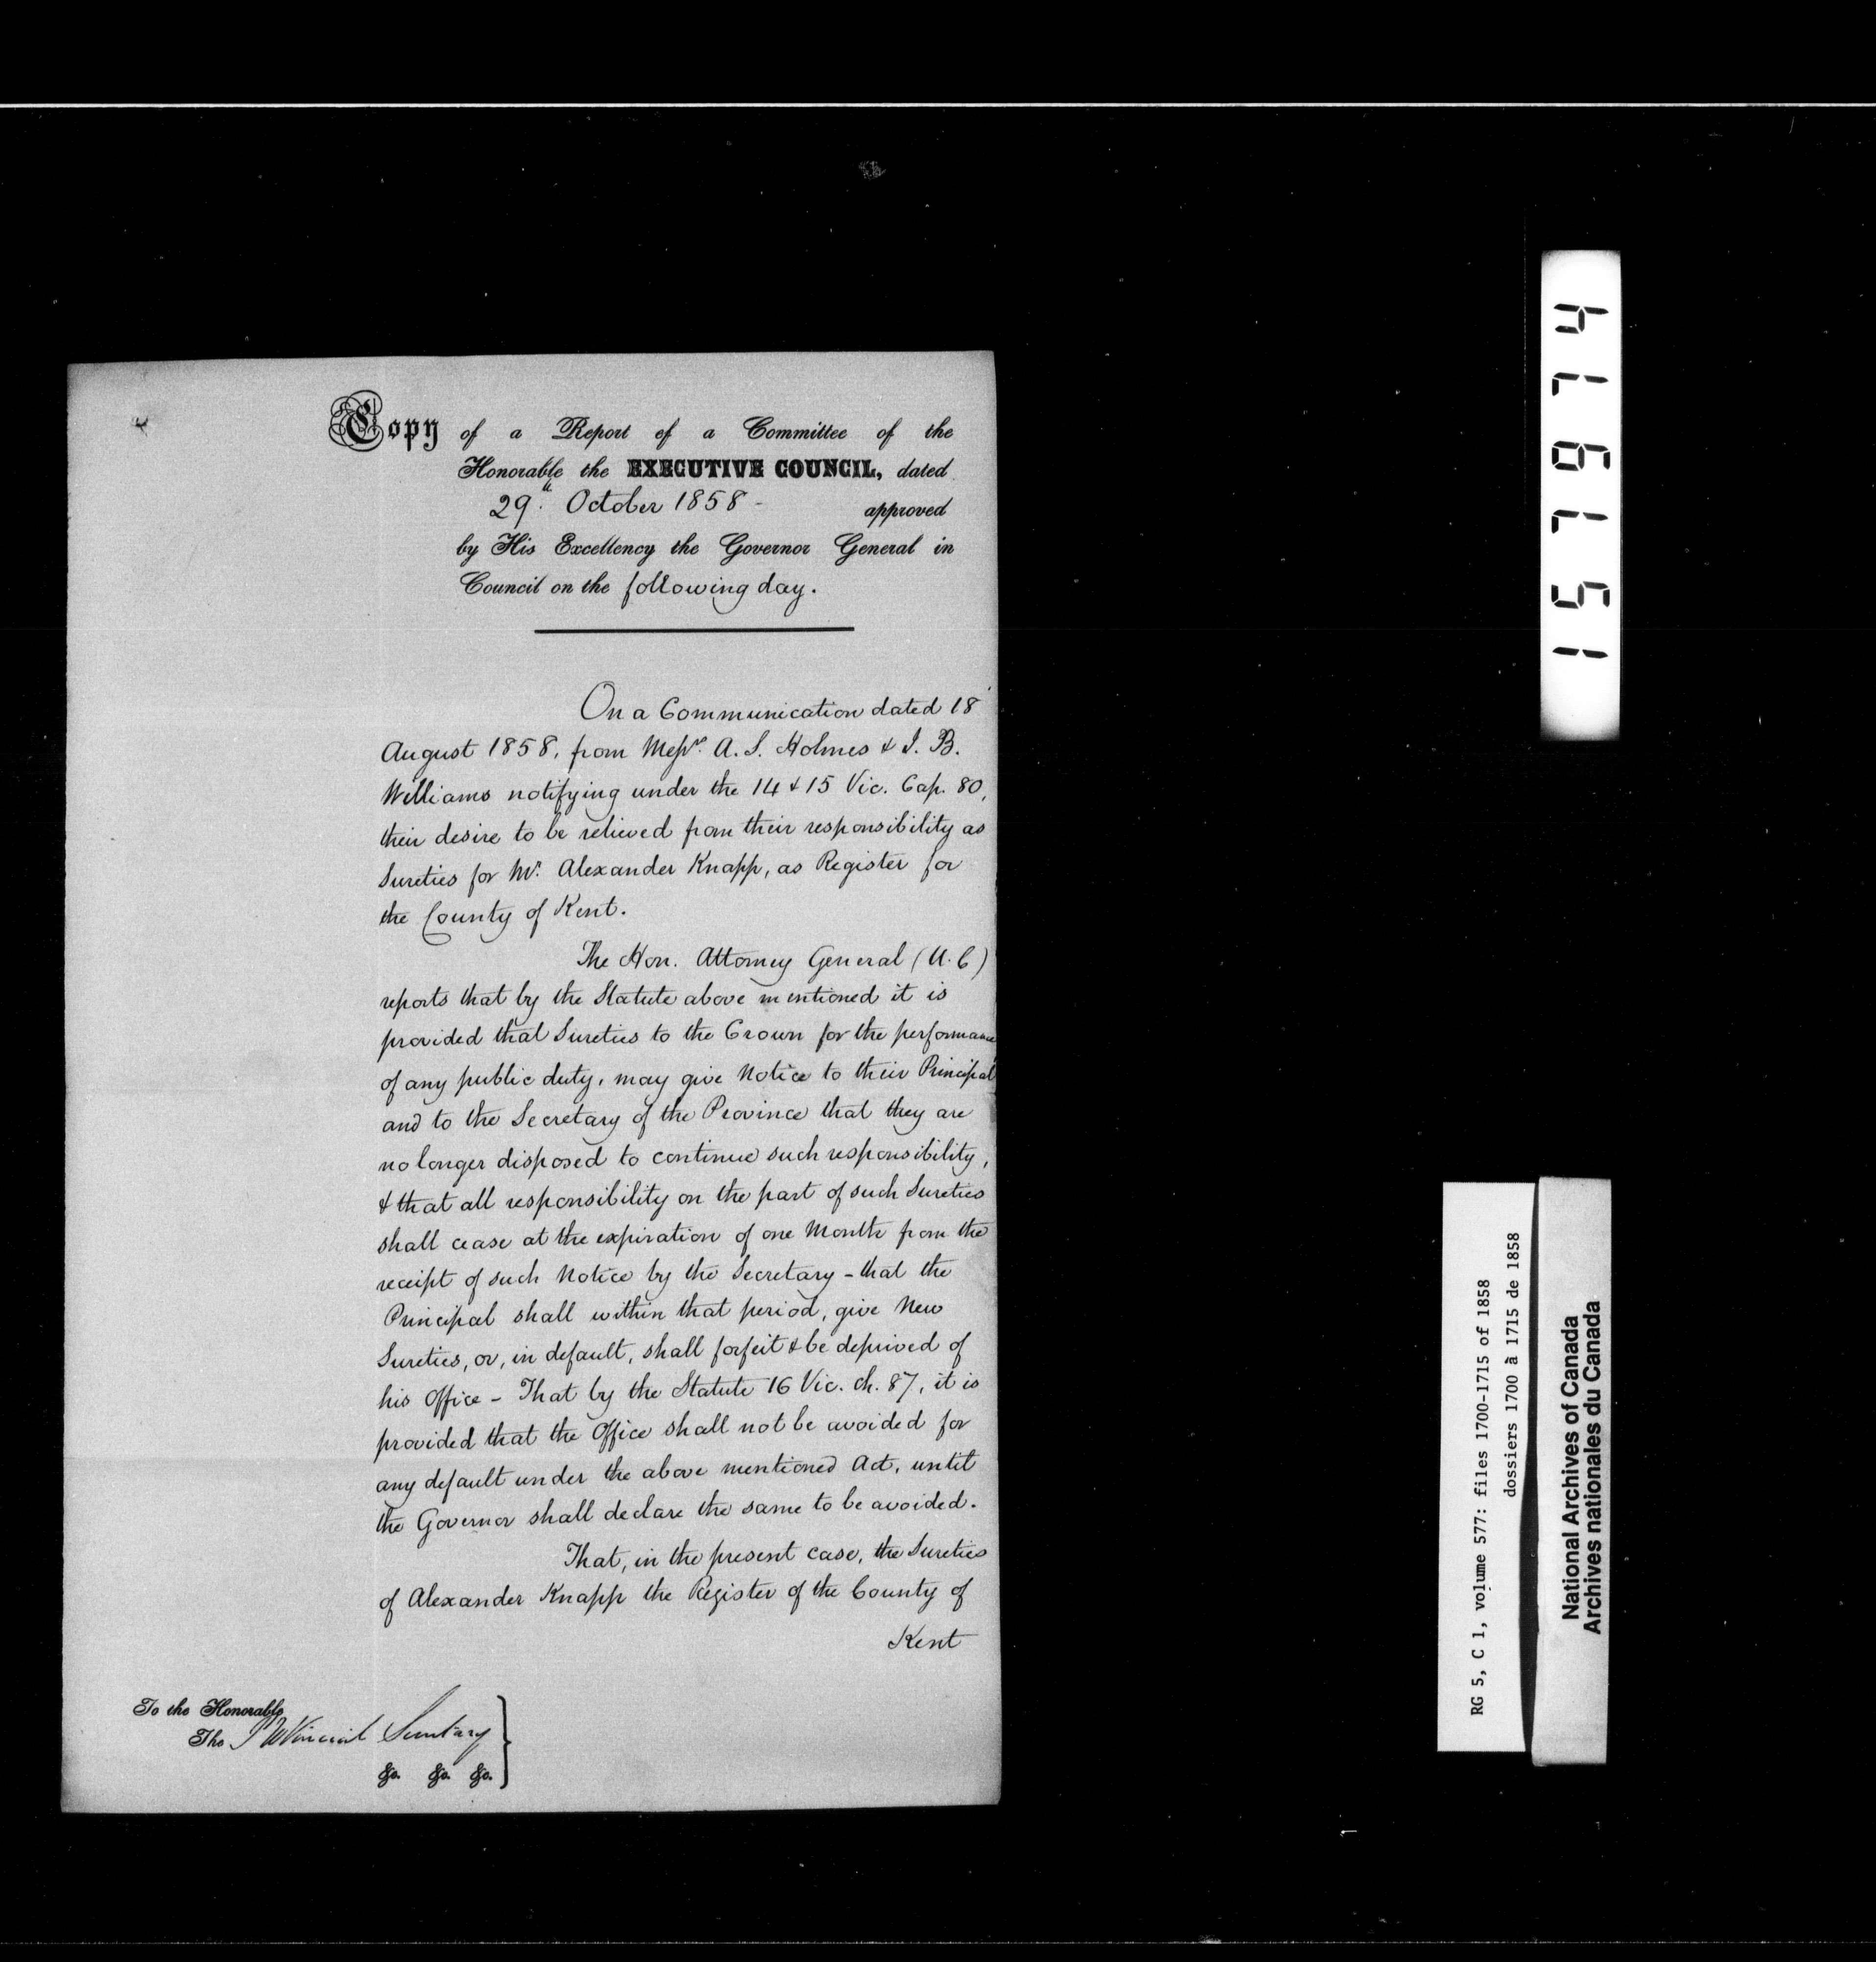 Copy of a Report of a Committee of the
Honorable the EXECUTIVE COUNCIL, dated
29th October 1858 - approved
by His Excellency the Governor General in
Council on the following day.
On a Communication dated 18
August 1858, from Messrs. A. S. Holmes & J. B.
Williams notifying under the 14 & 15 Vic. Cap. 80,
their desire to be relieved from their responsibility as
Sureties for Mr. Alexander Knapp, as Register for
the County of Kent.
The Hon. Attorney General (U.C)
reports that by the Statute above mentioned it is
provided that Sureties to the Crown for the performance
of any public duty, may give Notice to their Principal
and to the Secretary of the Province that they are
no longer disposed to continue such responsibility,
& that all responsibility on the part of such Sureties
shall cease at the expiration of one Month from the
receipt of such Notice by the Secretary - that the
Principal shall within that period, give New
Sureties, or, in default, shall forfeit & be deprived of
his Office - That by the Statute 16 Vic. ch. 87, it is
provided that the Office shall not be avoided for
any default under the above mentioned Act, until
the Governor shall declare the same to be avoided.
That, in the present case, the Sureties
of Alexander Knapp the Register of the County of
Kent
To the Honorable
The Provincial Secretary
&c. &c. &c.
157974
RG 5, C 1, volume 577: files 1700-1715 of 1858
dossiers 1700 à 1715 de 1858
National Archives of Canada
Archives nationales du Canada